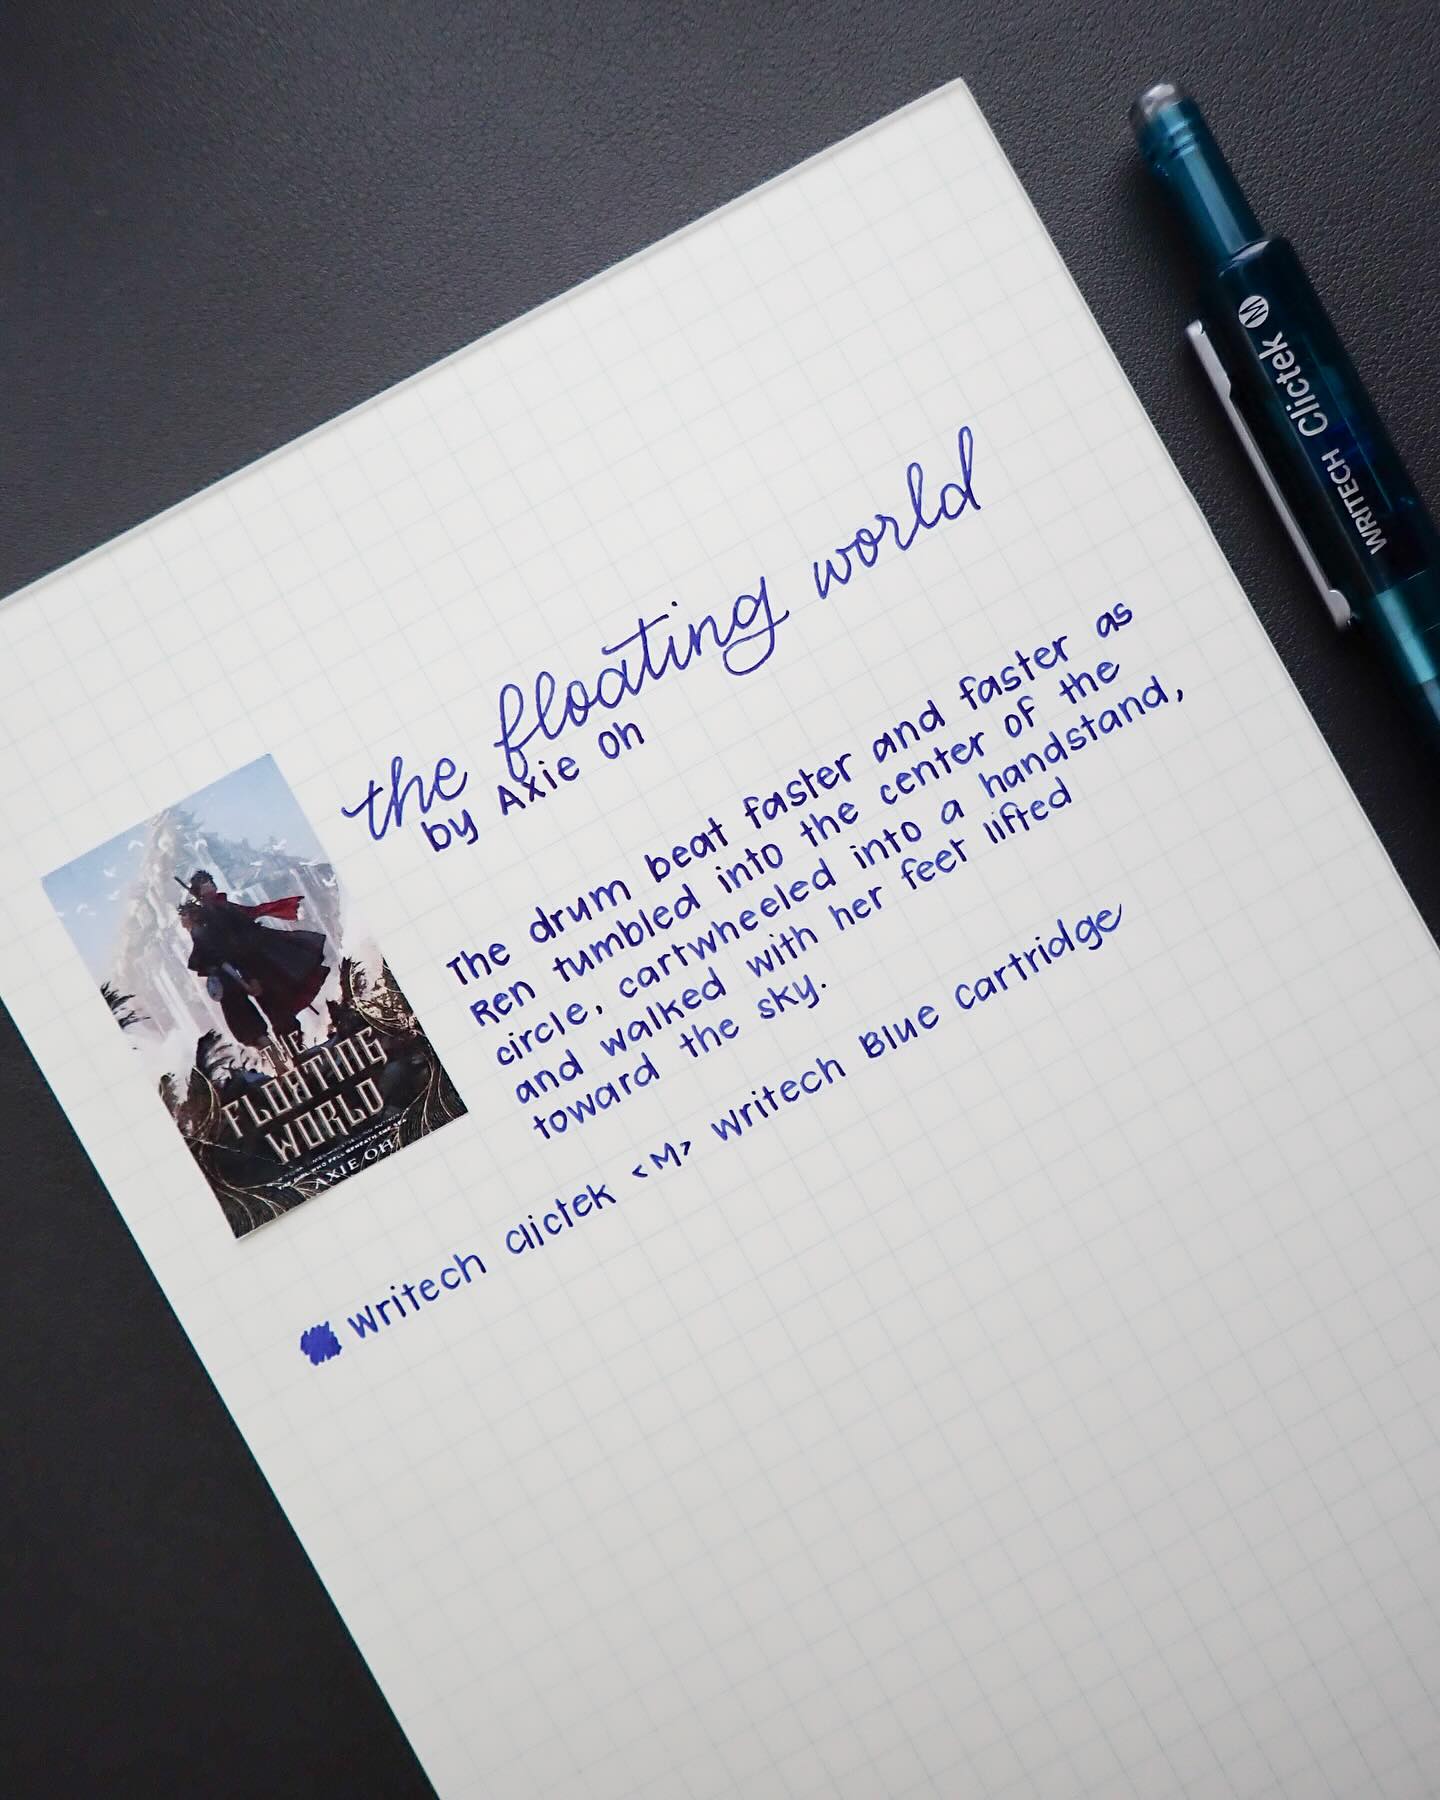 the floating world
by Axie Oh
The drum beat faster and faster as
Ren tumbled into the center of the
circle, cartwheeled into a handstand,
and walked with her feet lifted
toward the sky.
Writech Clictek <M> Writech Blue cartridge
THE
FLOATING
WORLD
AXIE OH
WRITECH Clictek M